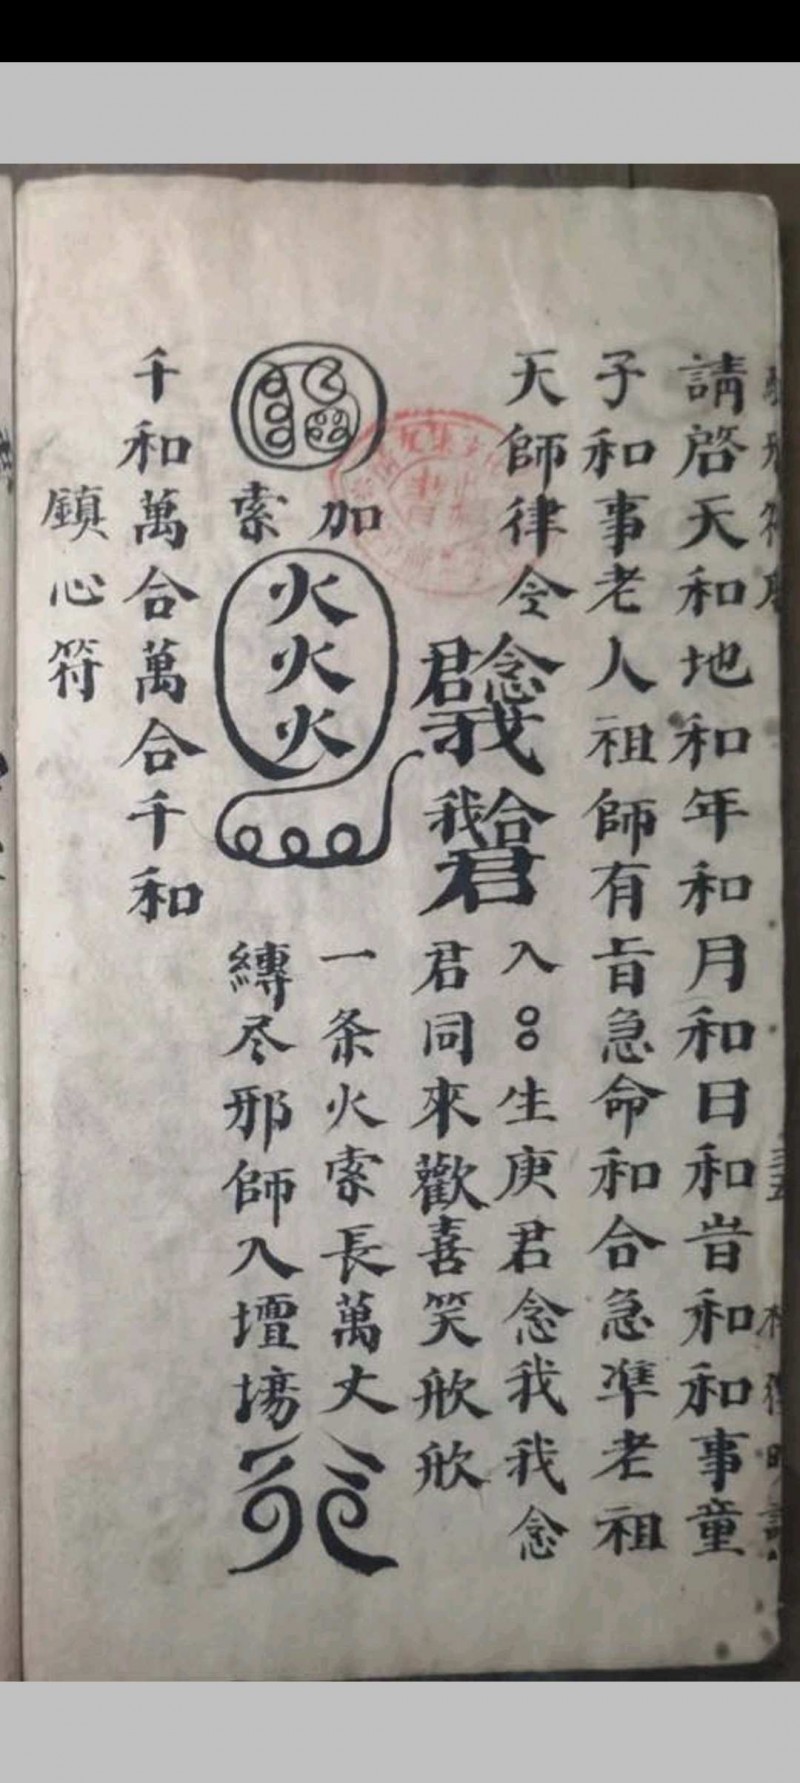 請啓天和地和年和月和日和旹和和事童
子和事老人祖師有旨急命和合急準老祖
天師律令
念君我
合我君
入 生庚君念我我念
君同來歡喜笑欣欣
加索
火火火
一条火索長萬丈
縛尽邪師入壇場
千和萬合萬合千和
鎮心符